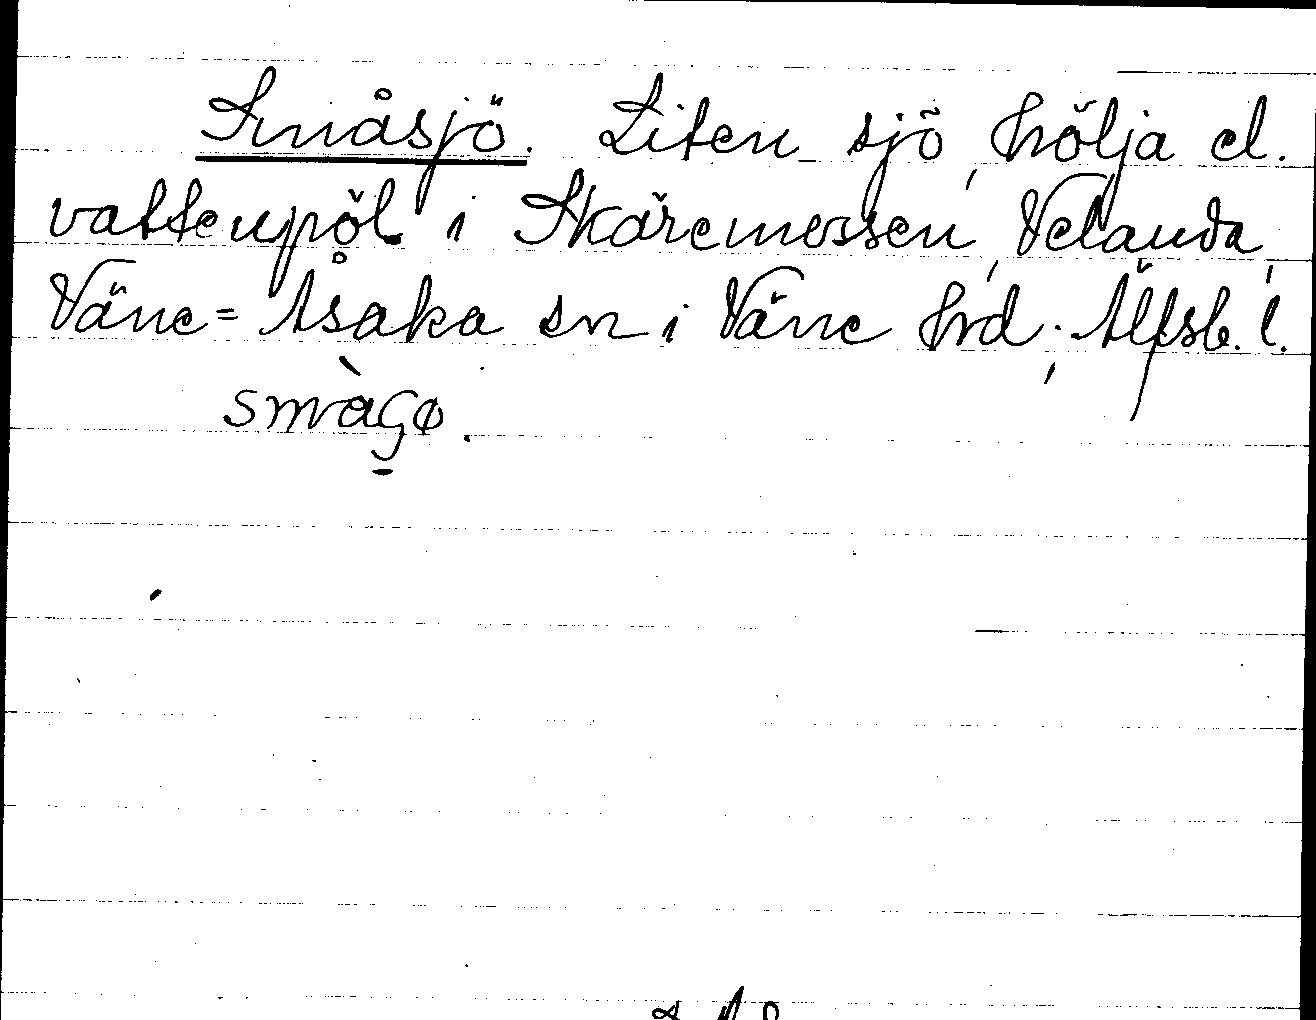 Småsjö. Liten sjö, hölja el.
vattenpöl i Skäremossen, Velanda,
Väne-Åsaka sn i Väne hrd, Älfsb. l.